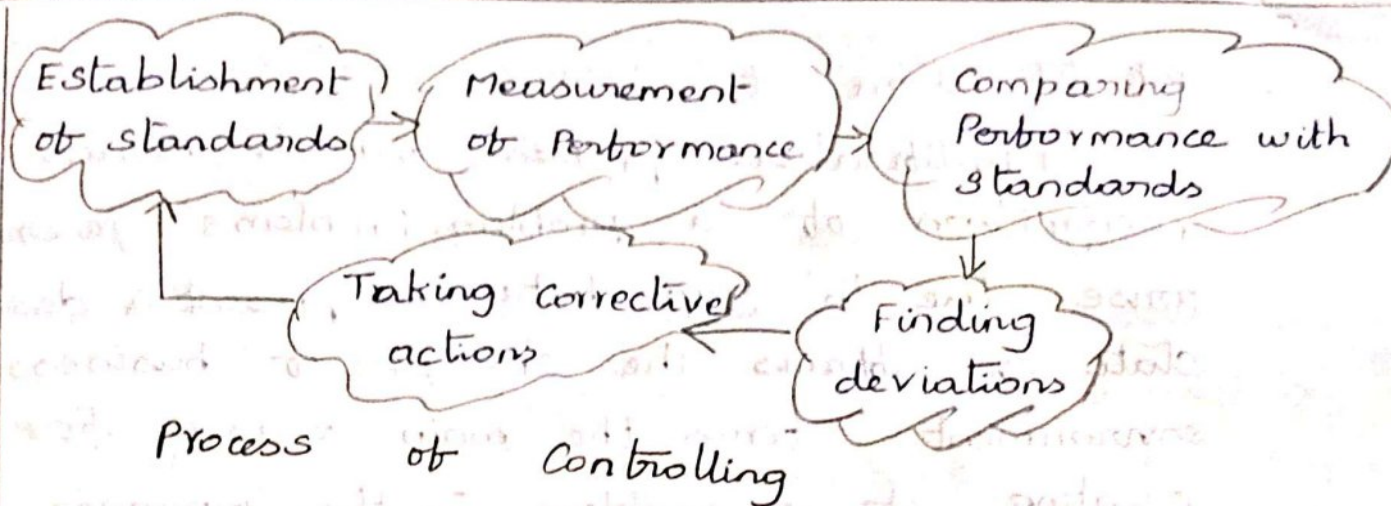 Establishment
of standards
Measurement
of Performance
Comparing
Performance with
standards
Finding
deviations
Taking corrective
actions
Process of Controlling